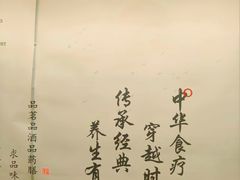 中华食疗
穿越时
传承经典
养生有
品茗品酒品药膳
求品味